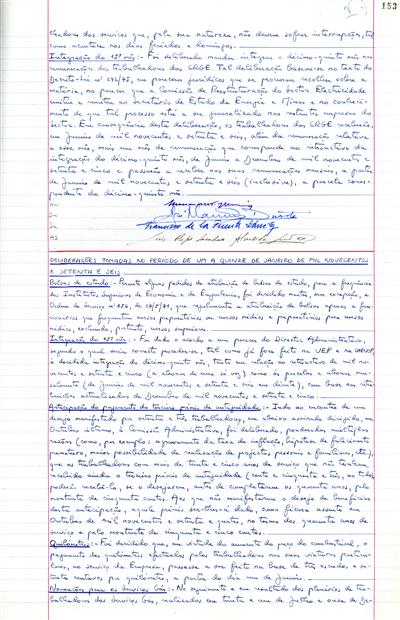 153
lhadores dos serviços que, pela sua natureza, não devem sofrer interrupções, tal
como acontece nos dias feriados e domingos.
Integração do 15º mês: - Foi deliberado mandar integrar o décimo-quinto mês nas
remunerações dos trabalhadores das CRGE. Tal deliberação baseou-se no texto do
Decreto-Lei nº 293/75, em pareceres jurídicos que se procuram recolher sobre a
matéria, no parecer que a Comissão de Reestruturação do Sector Electricidade
emitiu e remeteu ao Secretário de Estado da Energia e Minas e no conheci-
mento de que tal processo está a ser generalizado nas restantes empresas do
sector. Em consequência desta deliberação, os trabalhadores das CRGE receberão,
em Janeiro de mil novecentos e setenta e seis, além da remuneração relativa
a esse mês, mais um mês de remuneração que corresponde ao retroactivo da
integração do décimo-quinto mês, de Junho a Dezembro de mil novecentos e
setenta e cinco e passarão a receber nas suas remunerações mensais, a partir
de Janeiro de mil novecentos e setenta e seis (inclusive), a parcela corres-
pondente do décimo-quinto mês.
Francisco de la Fuente Sanches
DELIBERAÇÕES TOMADAS NO PERÍODO DE UM A QUINZE DE JANEIRO DE MIL NOVECENTOS
E SETENTA E SEIS
Bolsas de estudo: - Perante alguns pedidos de atribuição de bolsas de estudo, para a frequência
dos Institutos Superiores de Economia e de Engenharia, foi decidido manter, sem excepção, a
Ordem de Serviço nº
que frequentem cursos preparatórios ou cursos médios e preparatórios para cursos
médios, excluindo, portanto, cursos superiores.
Integração do 15º mês: - Foi dado o acordo a um parecer do Director Administrativo,
segundo o qual seria correcto proceder-se, tal como já fora feito na UEP e na
à decidida integração do décimo quinto mês, tanto em relação ao retroactivo de mil no-
vecentos e setenta e cinco (a abonar de uma só vez) como às parcelas a abonar men-
salmente (de Janeiro de mil novecentos e setenta e seis em diante), com base nas re-
tribuições actualizadas de Dezembro de mil novecentos e setenta e cinco.
Antecipação do pagamento do terceiro prémio de antiguidade: - Indo ao encontro de um
desejo manifestado por setenta e três trabalhadores, em abaixo assinado dirigido, em
Outubro último, à Comissão Administrativa, foi deliberado, ponderadas múltiplas
razões (como, por exemplo: agravamento da taxa de inflação, hipótese de falecimento
prematuro, maiores possibilidades de realização de projectos pessoais e familiares, etc.),
que os trabalhadores com mais de trinta e cinco anos de serviço que não tenham
recebido ainda o terceiro prémio de antiguidade (cento e cinquenta e três, ao todo)
poderão recebê-lo, se o desejarem, antes de completarem os quarenta anos, pelo
montante de cinquenta contos. Aos que não manifestarem o desejo de beneficiar
desta antecipação, aquele prémio ser-lhes-á dado, como ficara assente em
Outubro de mil novecentos e setenta e quatro, no termo dos quarenta anos de
serviço e pelo montante de cinquenta e cinco contos.
Quilómetros: - Foi decidido que, em virtude do aumento do preço do combustível, o
pagamento dos quilómetros efectuados pelos trabalhadores nas suas viaturas particu-
lares, ao serviço da Empresa, passasse a ser feito na base de três escudos e se-
tenta centavos por quilómetro, a partir do dia um de Janeiro.
Nomeações para os Serviços: - No seguimento e em resultado dos plenários de tra-
balhadores dos Serviços, realizados em trinta e um de Julho e onze de De-